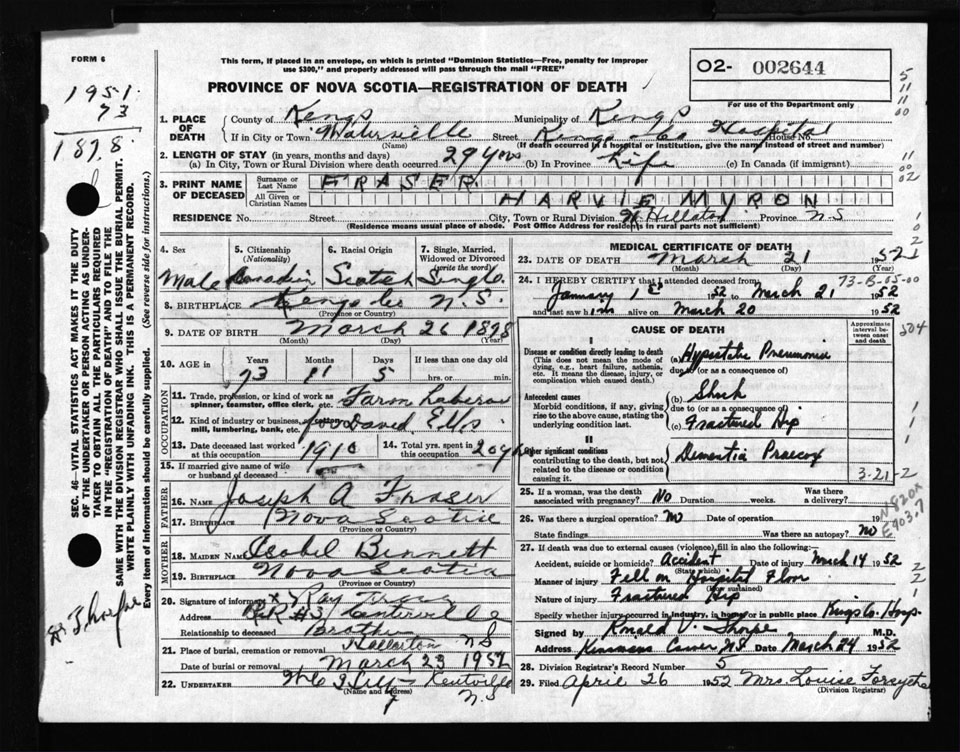 FORM 6
This form, if placed in an envelope, on which is printed "Dominion Statistics—Free, penalty for improper
use $300," and properly addressed will pass through the mail "FREE"
O2- 002644
PROVINCE OF NOVA SCOTIA—REGISTRATION OF DEATH
For use of the Department only
1951
73
1878
1. PLACE OF DEATH County of Kings Municipality of Kings
If in City or Town Waterville Street Kings Co Hospital House No.
(Name) (If death occurred in a hospital or institution, give the name instead of street and number)
2. LENGTH OF STAY (in years, months and days)
(a) In City, Town or Rural Division where death occurred 29 yrs (b) In Province Life (c) In Canada (if immigrant)
3. PRINT NAME OF DECEASED Surname or Last Name FRASER
All Given or Christian Names HARVIE MYRON
RESIDENCE No. Street City, Town or Rural Division Province N.S
(Residence means usual place of abode. Post Office Address for residents in rural parts not sufficient)
4. Sex 5. Citizenship (Nationality) 6. Racial Origin 7. Single, Married, Widowed or Divorced (write the word)
Male Canadian Scotch Single
8. BIRTHPLACE Kings Co N.S.
(Province or Country)
9. DATE OF BIRTH March 26 1878
(Month) (Day) (Year)
10. AGE in Years Months Days If less than one day old
73 11 5 hrs. or min.
OCCUPATION
11. Trade, profession, or kind of work as spinner, teamster, office clerk, etc. Farm Laborer
12. Kind of industry or business, mill, lumbering, bank, etc. for David Ells
13. Date deceased last worked at this occupation 1910 14. Total yrs. spent in this occupation 20 yrs
15. If married give name of wife or husband of deceased
FATHER
16. NAME Joseph A Fraser
17. BIRTHPLACE Nova Scotia
(Province or Country)
MOTHER
18. MAIDEN NAME Isobel Bennett
19. BIRTHPLACE Nova Scotia
(Province or Country)
20. Signature of informant x Ray
Address R.R #3, Centerville
Relationship to deceased Brother
21. Place of burial, cremation or removal NS
Date of burial or removal March 23 1952
22. UNDERTAKER Kentville
(Name and Address) N.S
MEDICAL CERTIFICATE OF DEATH
23. DATE OF DEATH March 21 1952
(Month) (Day) (Year)
24. I HEREBY CERTIFY that I attended deceased from 73-6-05-00
January 1st 1952 to March 21 1952
and last saw him alive on March 20 1952
CAUSE OF DEATH
Approximate interval between onset and death
I
Disease or condition directly leading to death (a) Hypostatic Pneumonia
(This does not mean the mode of dying, e.g., heart failure, asthenia, etc. It means the disease, injury, or complication which caused death.)
due to (or as a consequence of)
Antecedent causes (b) Shock
Morbid conditions, if any, giving rise to the above cause, stating the underlying condition last.
due to (or as a consequence of)
(c) Fractured Hip
II
Other significant conditions Dementia Praecox
contributing to the death, but not related to the disease or condition causing it.
3-21-2
25. If a woman, was the death associated with pregnancy? No Duration weeks. Was there a delivery?
26. Was there a surgical operation? No Date of operation 19
State findings Was there an autopsy? No
N820x
E903.7
27. If death was due to external causes (violence) fill in also the following:
Accident, suicide or homicide? Accident Date of injury March 14 1952
(State which)
Manner of injury Fell on Hospital Floor
(How sustained)
Nature of injury Fractured Hip
Specify whether injury occurred in industry, in home or in public place Kings Co. Hosp.
Signed by M.D.
Address N.S. Date March 24 1952
28. Division Registrar's Record Number 5
29. Filed April 26 1952 Mrs. Louise Forsythe
(Division Registrar)
SEC. 46—VITAL STATISTICS ACT MAKES IT THE DUTY
OF THE UNDERTAKER OR PERSON ACTING AS UNDER-
TAKER TO OBTAIN ALL THE PARTICULARS REQUIRED
IN THE "REGISTRATION OF DEATH" AND TO FILE THE
SAME WITH THE DIVISION REGISTRAR WHO SHALL ISSUE THE BURIAL PERMIT.
WRITE PLAINLY WITH UNFADING INK. THIS IS A PERMANENT RECORD.
Every item of information should be carefully supplied. (See reverse side for instructions.)